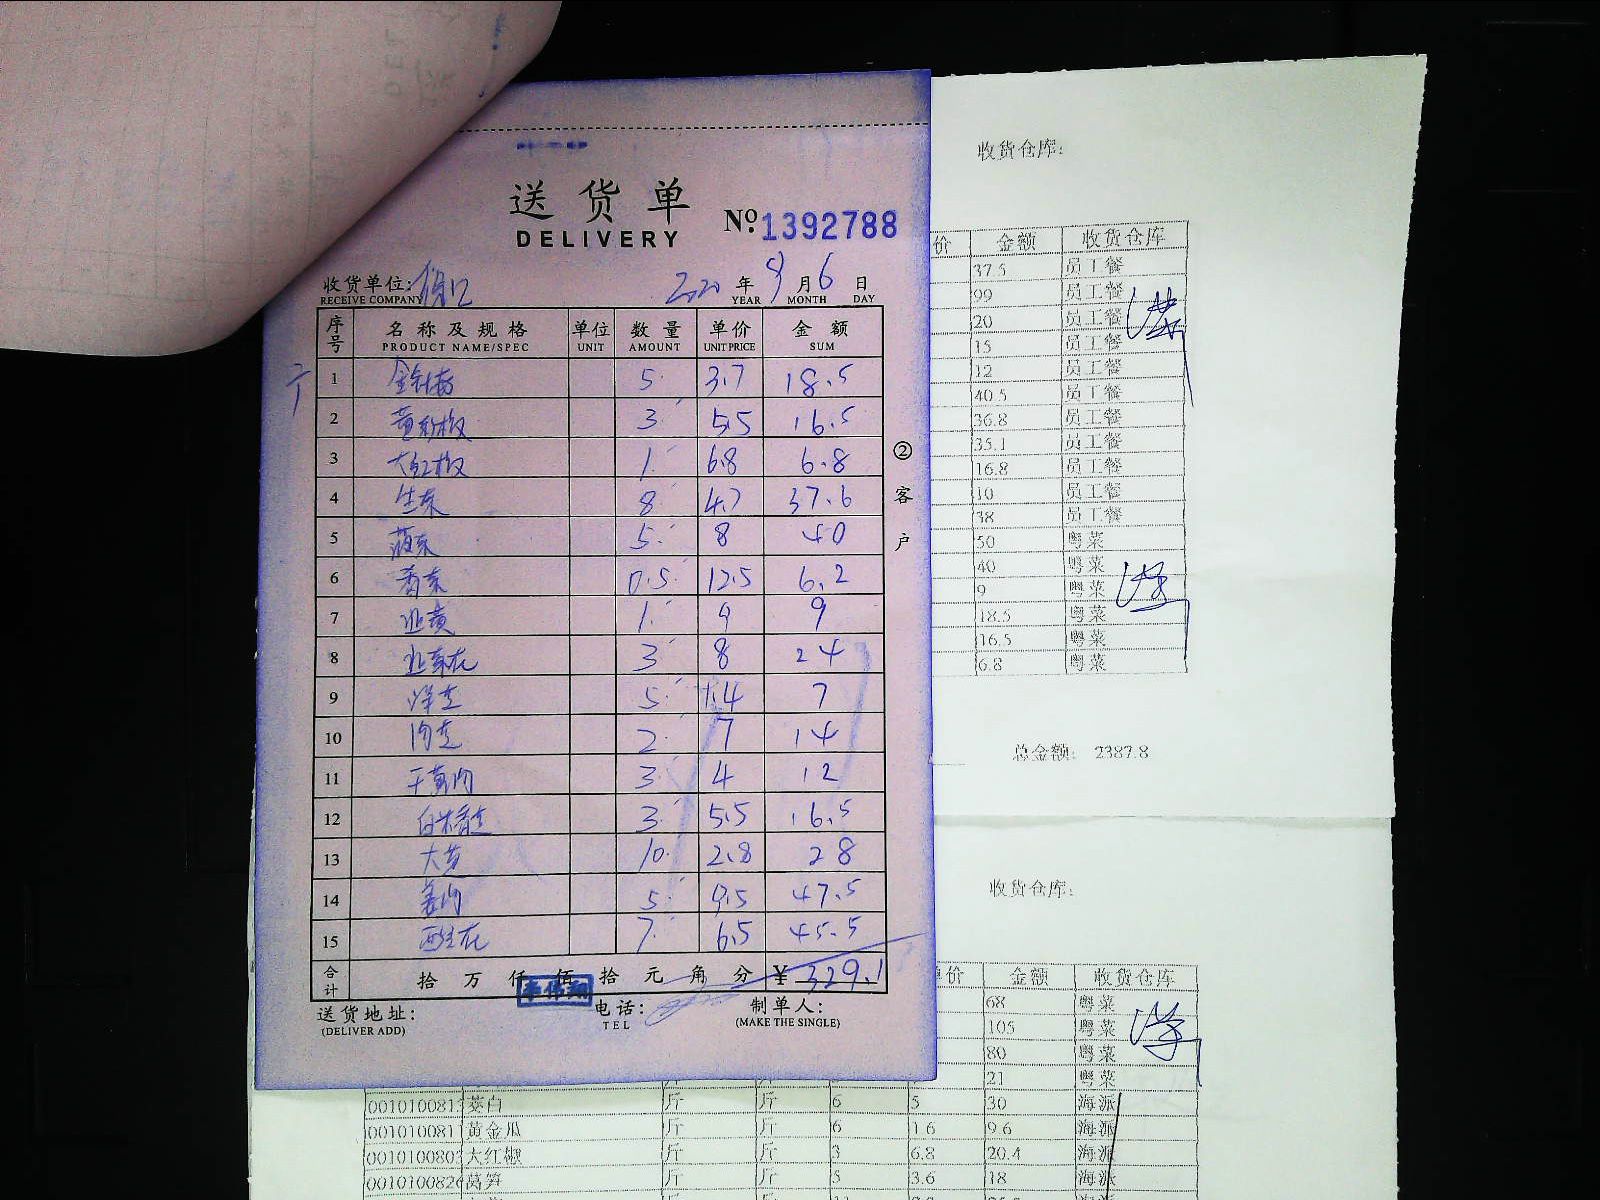 送货单
DELIVERY
№:1392788
收货单位:
RECEIVE COMPANY
2020 年 9 月 6 日
YEAR MONTH DAY
序号 名称及规格 单位 数量 单价 金额
PRODUCT NAME/SPEC UNIT AMOUNT UNIT PRICE SUM
1 金针菇 5 3.7 18.5
2 黄彩椒 3 5.5 16.5
3 大红椒 1 6.8 6.8
4 生菜 8 4.7 37.6
5 菠菜 5 8 40
6 香菜 0.5 12.5 6.2
7 韭黄 1 9 9
8 3 8 24
9 5 1.4 7
10 2 7 14
11 3 4 12
12 3 5.5 16.5
13 大 10 2.8 28
14 姜 5 9.5 47.5
15 西 7 6.5 45.5
合计 拾 万 仟 佰 拾 元 角 分 ¥ 329.1
送货地址: 电话: 制单人:
(DELIVER ADD) TEL (MAKE THE SINGLE)
② 客户
收货仓库:
价 金额 收货仓库
37.5 员工餐
99 员工餐
20 员工餐
15 员工餐
12 员工餐
40.5 员工餐
36.8 员工餐
35.1 员工餐
16.8 员工餐
10 员工餐
38 员工餐
50 粤菜
40 粤菜
9 粤菜
18.5 粤菜
16.5 粤菜
6.8 粤菜
总金额: 2387.8
收货仓库:
单价 金额 收货仓库
68 粤菜
105 粤菜
80 粤菜
21 粤菜
茭白 斤 斤 6 5 30 海派
黄金瓜 斤 斤 6 1.6 9.6 海派
大红椒 斤 斤 3 6.8 20.4 海派
莴笋 斤 斤 5 3.6 18 海派